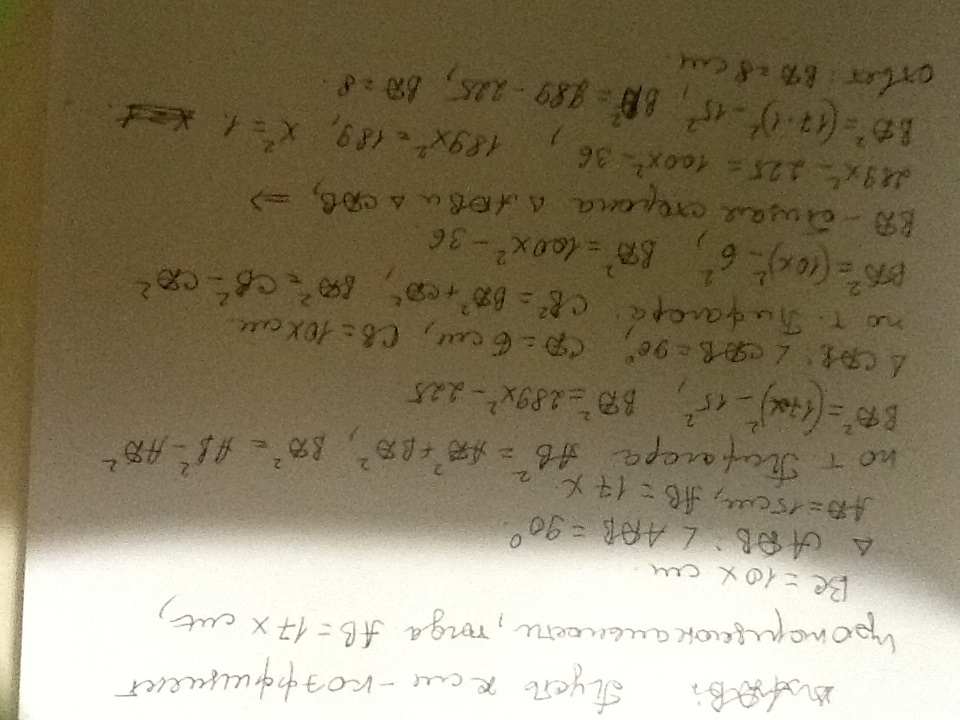 Пусть x см - коэффициент
пропорциональности, тогда AB = 17x см,
BC = 10x см.
Δ ADB: ∠ADB = 90°.
AD = 15 см, AB = 17x
по т Пифагора AB² = AD² + BD², BD² = AB² - AD²
BD² = (17x)² - 15², BD² = 289x² - 225
Δ CDB: ∠CDB = 90°, CD = 6 см, CB = 10x см
по т. Пифагора: CB² = BD² + CD², BD² = CB² - CD²
BD² = (10x)² - 6², BD² = 100x² - 36
BD - общая сторона Δ ADB и Δ CDB, =>
289x² - 225 = 100x² - 36, 189x² = 189, x² = 1
BD² = (17·1)² - 15², BD² = 289 - 225, BD = 8.
Ответ: BD = 8 см.